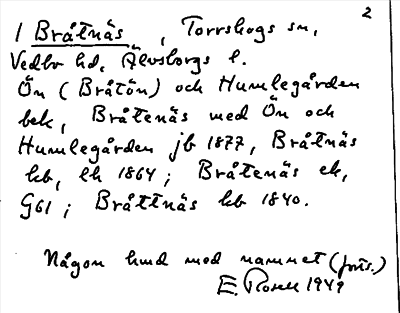 2
1 Bråtnäs, Torrskogs sn,
Vedbo hd, Älvsborgs l.
Ön (Bråtön) och Humlegården
bek, Bråtenäs med Ön och
Humlegården jb 1877, Bråtnäs
kb, lh 1864; Bråtenäs ek,
G61; Bråttnäs kb 1840.
Någon kund med namnet (forts.)
E. Rosell 1949